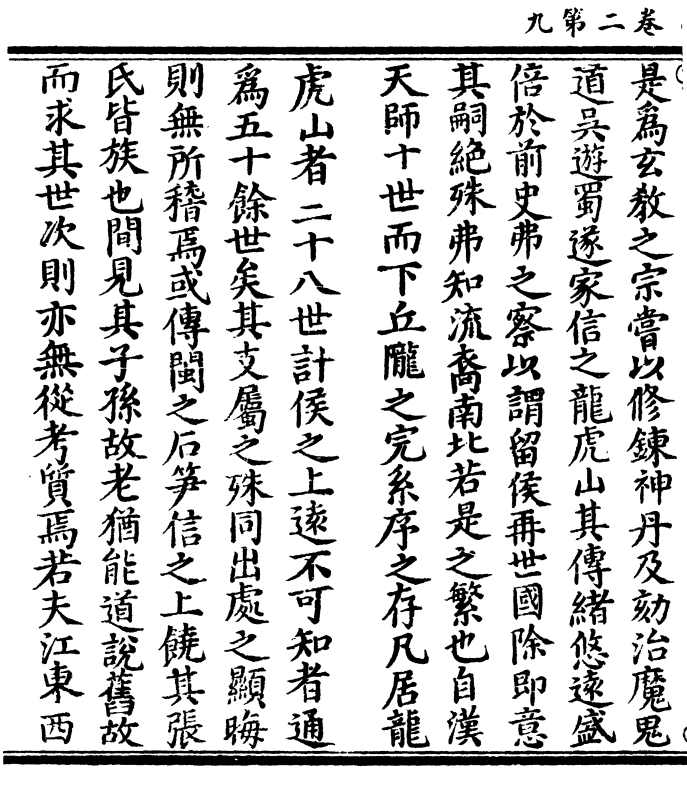 卷二第九
是爲玄教之宗嘗以修鍊神丹及劾治魔鬼
道吳遊蜀遂家信之龍虎山其傳緒悠遠盛
倍於前史弗之察以謂留侯再世國除即意
其嗣絶殊弗知流裔南北若是之繁也自漢
天師十世而下丘隴之完系序之存凡居龍
虎山者二十八世計侯之上遠不可知者通
爲五十餘世矣其支屬之殊同出處之顯晦
則無所稽焉或傳閩之后笋信之上饒其張
氏皆族也間見其子孫故老猶能道說舊故
而求其世次則亦無從考質焉若夫江東西